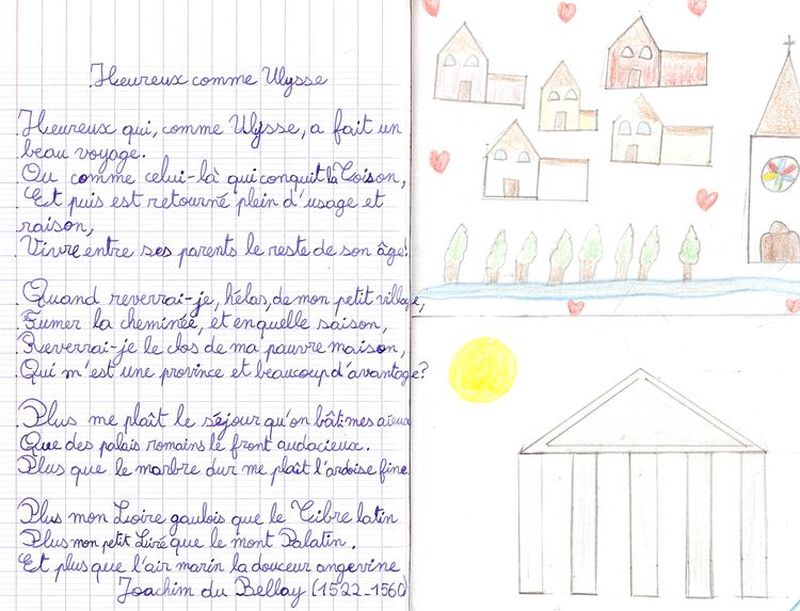 Heureux comme Ulysse
Heureux qui, comme Ulysse, a fait un
beau voyage.
Ou comme celui-là qui conquit la Toison,
Et puis est retourné plein d'usage et
raison,
Vivre entre ses parents le reste de son âge!
Quand reverrai-je, hélas, de mon petit village,
Fumer la cheminée, et en quelle saison,
Reverrai-je le clos de ma pauvre maison,
Qui m'est une province et beaucoup d'avantage?
Plus me plaît le séjour qu'on bâti mes aïeux
Que des palais romains le front audacieux.
Plus que le marbre dur me plaît l'ardoise fine
Plus mon Loire gaulois que le Tibre latin
Plus mon petit Liré que le mont Palatin.
Et plus que l'air marin la douceur angevine
Joachim du Bellay (1522-1560)